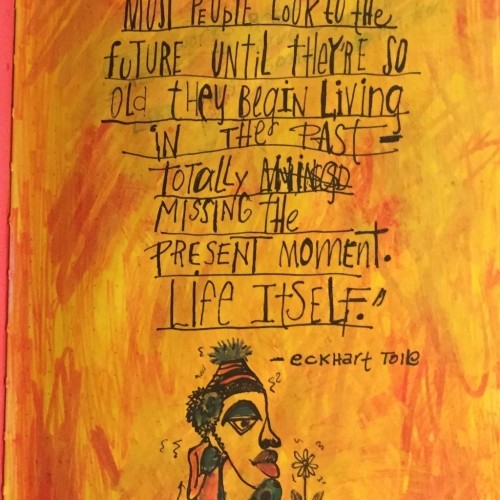 MOST PEOPLE LOOK to the
fUTURE UNTiL tHEY'RE SO
OLD tHEY BEGIN LiViNg
iN THE PAST -
TOTALLY
MISSING THE
PRESENT MOMENT.
LifE ITSELF."
- eckHart Tolle